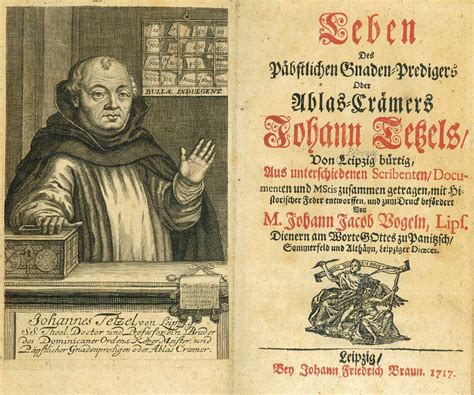 BULLÆ INDULGENT.
Johannes Tetzel von Leipzig
SS. Theol. Doctor und Professor ein Bruder
des Dominicaner Ordens Ketzer Meister. und
Päpstlicher Gnadenprediger oder Ablas Cramer.
Leben
Des
Päbstlichen Gnaden-Predigers
Oder
Ablas-Crämers
Johann Tetzels/
Von Leipzig bürtig,
Aus unterschiedenen Scribenten/ Docu-
menten und MStis zusammen getragen, mit Hi-
storischer Feder entworffen, und zum Druck befördert
Von
M. Johann Jacob Vogeln, Lips.
Dienern am Worte GOttes zu Panitzsch/
Sommerfeld und Althäyn, Leipziger Diœces.
Leipzig/
Bey Johann Friedrich Braun. 1717.